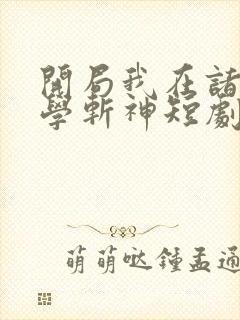 開局我在諸
學斬神短劇
萌萌噠鍾孟通